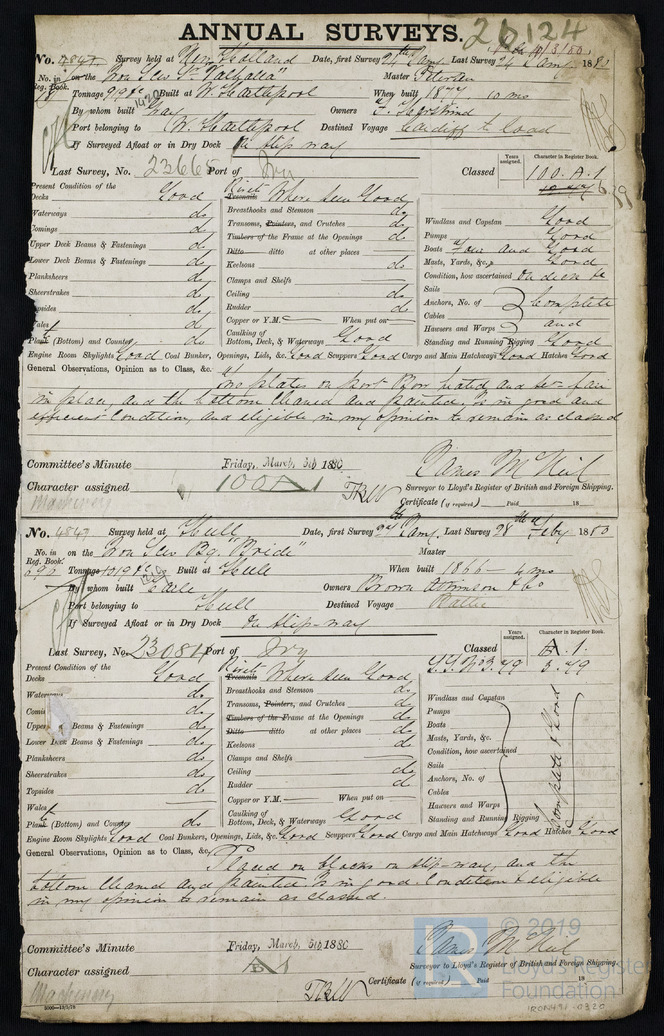 ANNUAL SURVEYS. 26124
No. 4847 Survey held at New Holland Date, first Survey 24th Jany. Last Survey 24 Jany. 1880
No. in Reg. Book. on the Iron Scw Sr "Valhalla" Master Petersen
78 Tonnage Built at W. Hartlepool When built 1874 10 mo
By whom built Gray Owners
Port belonging to W. Hartlepool Destined Voyage Cardiff to load
If Surveyed Afloat or in Dry Dock On slip way
Last Survey, No. 23665 Port of Years assigned. Character in Register Book.
Classed 100.A.1
Present Condition of the
Decks Good
Waterways do
Comings do
Upper Deck Beams & Fastenings do
Lower Deck Beams & Fastenings do
Planksheers do
Sheerstrakes do
Topsides do
Wales do
Plank (Bottom) and Counter do
Rivets Treenails Where seen Good
Breasthooks and Stemson do
Transoms, Pointers, and Crutches do
Timbers of the Frame at the Openings do
Ditto ditto at other places do
Keelsons do
Clamps and Shelfs
Ceiling do
Rudder do
Copper or Y.M. When put on
Caulking of Bottom, Deck, & Waterways Good
Windlass and Capstan Good
Pumps Good
Boats Four and Good
Masts, Yards, &c. Good
Condition, how ascertained On deck &c
Sails
Anchors, No. of Complete
Cables and
Hawsers and Warps
Standing and Running Rigging Good
Engine Room Skylights Good Coal Bunker, Openings, Lids, &c. Good Scuppers Good Cargo and Main Hatchways Good Hatches Good
General Observations, Opinion as to Class, &c. Two plates on port Bow heated and set fair
in place, and the bottom cleaned and painted, Is in good and
efficient Condition, and eligible in my opinion to remain as classed
Committee's Minute Friday, March, 5th 1880 James McNeil
Character assigned 100A1 Surveyor to Lloyd's Register of British and Foreign Shipping.
Certificate (if required) Paid 18
Machinery
No. 4849 Survey held at Hull Date, first Survey Jany. Last Survey 28th Feby 1880
No. in Reg. Book. on the Iron Scw Bg. "Bride" Master
Tonnage Built at Hull When built 1866 - 4 mo
By whom built Earle Owners Brown Atkinson & Co
Port belonging to Hull Destined Voyage Baltic
If Surveyed Afloat or in Dry Dock On slip-way
Last Survey, No. 23084 Port of Years assigned. Character in Register Book.
Classed A.1.
3.79
Present Condition of the
Decks Good
Waterways do
Comings do
Upper Beams & Fastenings do
Lower Deck Beams & Fastenings do
Planksheers do
Sheerstrakes do
Topsides do
Wales
Plank (Bottom) and Counter do
Rivets Treenails Where seen Good
Breasthooks and Stemson do
Transoms, Pointers, and Crutches do
Timbers of the Frame at the Openings do
Ditto ditto at other places do
Keelsons do
Clamps and Shelfs
Ceiling do
Rudder do
Copper or Y.M. When put on
Caulking of Bottom, Deck, & Waterways Good
Windlass and Capstan
Pumps
Boats
Masts, Yards, &c.
Condition, how ascertained
Sails
Anchors, No. of
Cables
Hawsers and Warps
Standing and Running Rigging
Complete & Good
Engine Room Skylights Good Coal Bunkers, Openings, Lids, &c. Good Scuppers Good Cargo and Main Hatchways Good Hatches Good
General Observations, Opinion as to Class, &c. Placed on blocks on slip-way, and the
bottom cleaned and painted. Is in good Condition & eligible
in my opinion to remain as classed.
Committee's Minute Friday, March, 5th 1880 James McNeil
Character assigned A1 Surveyor to Lloyd's Register of British and Foreign Shipping.
Certificate (if required) Paid 18
Machinery
© 2019
Lloyd's Register
Foundation
IRON491-0320